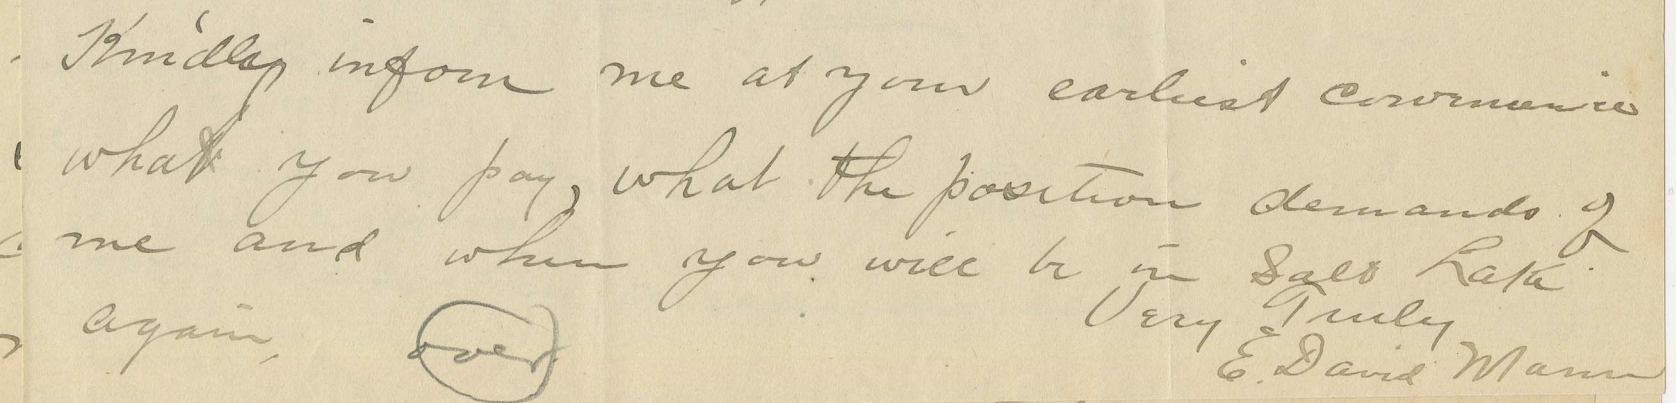 Kindly inform me at your earliest convenience
what you pay, what the position demands of
me and when you will be in Salt Lake
again,
over
Very Truly
E. David Mann